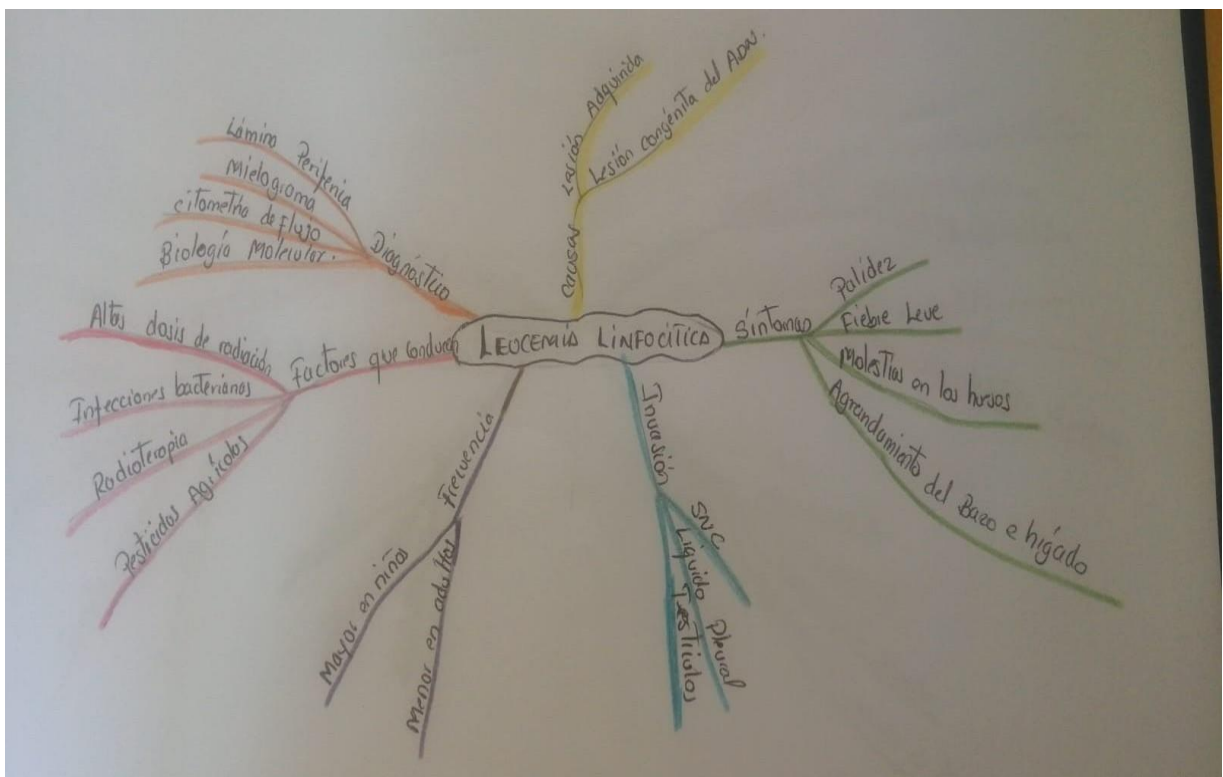 LEUCEMIA LINFOCÍTICA
Causas
Lesión Adquirida
Lesión congénita del ADN.
Síntomas
Palidez
Fiebre Leve
Molestias en los huesos
Agrandamiento del Bazo e hígado
Invasión
SNC
Líquido Pleural
Testiculos
Frecuencia
Mayor en niños
Menor en adultos
Factores que conducen
Altas dosis de radiación
Infecciones bacterianas
Radioterapia
Pesticidas Agrícolas
Diagnóstico
Lámina Periferica
Mielograma
citometria de flujo
Biología Molecular.